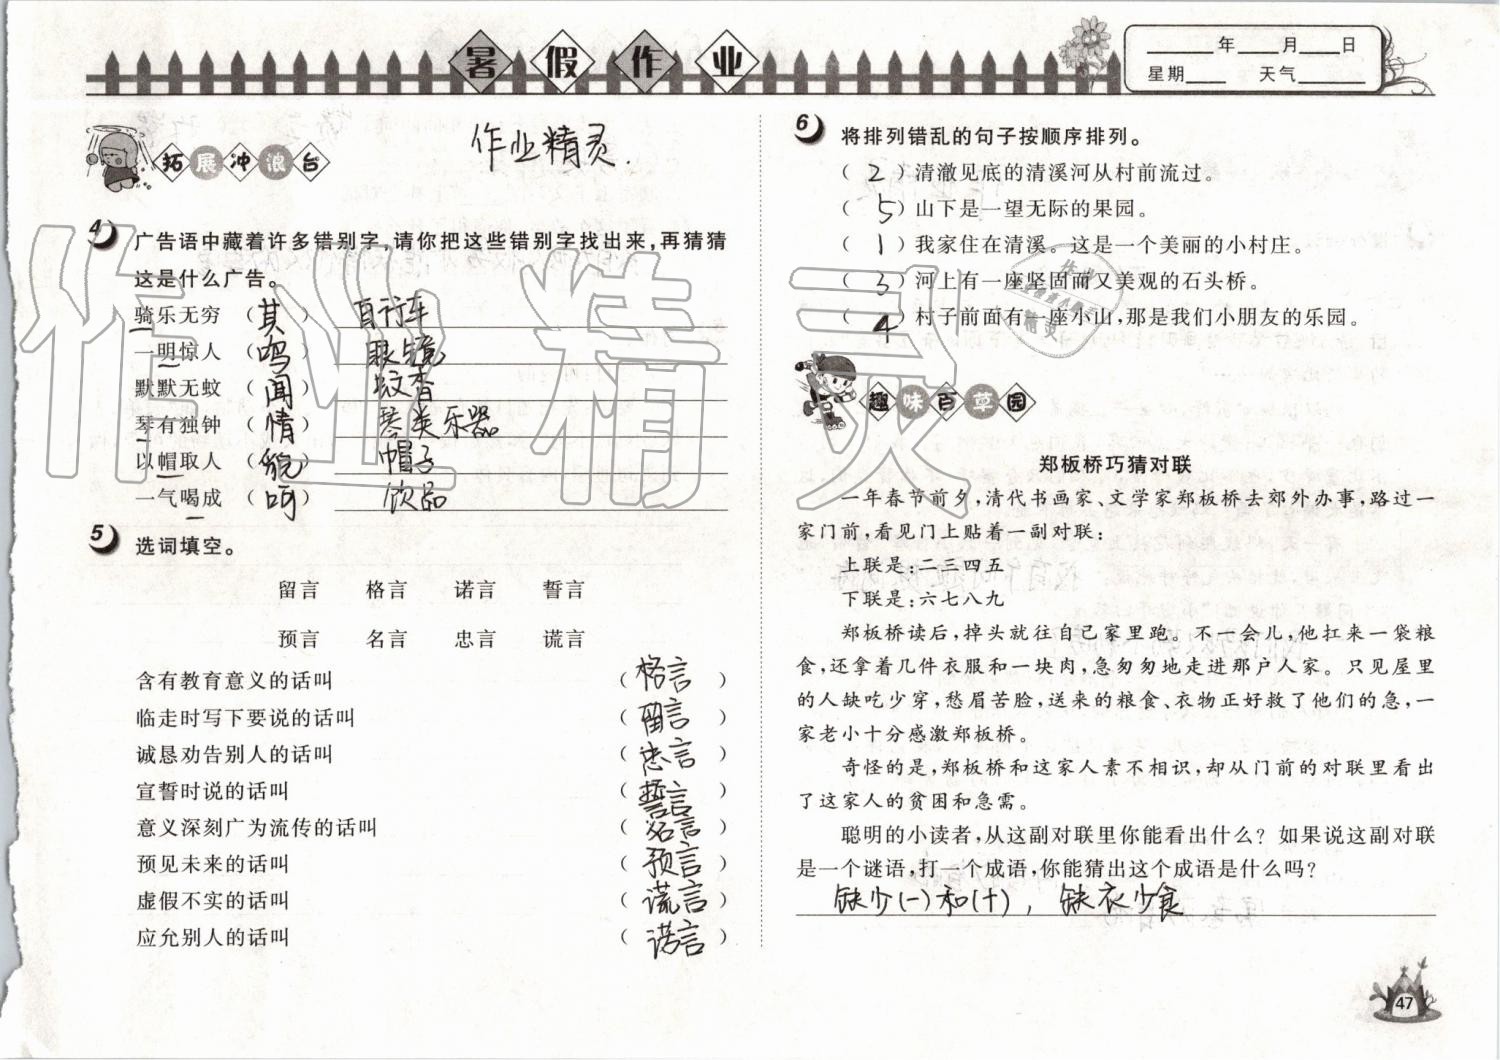 暑假作业
____年____月____日
星期____ 天气____
拓展冲浪台
作业精灵.
4 广告语中藏着许多错别字,请你把这些错别字找出来,再猜猜
这是什么广告。
骑乐无穷 ( 其 ) 自行车
一明惊人 ( 鸣 ) 眼镜
默默无蚊 ( 闻 ) 蚊香
琴有独钟 ( 情 ) 琴类乐器
以帽取人 ( 貌 ) 帽子
一气喝成 ( 呵 ) 饮品
5 选词填空。
留言 格言 诺言 誓言
预言 名言 忠言 谎言
含有教育意义的话叫 ( 格言 )
临走时写下要说的话叫 ( 留言 )
诚恳劝告别人的话叫 ( 忠言 )
宣誓时说的话叫 ( 誓言 )
意义深刻广为流传的话叫 ( 名言 )
预见未来的话叫 ( 预言 )
虚假不实的话叫 ( 谎言 )
应允别人的话叫 ( 诺言 )
6 将排列错乱的句子按顺序排列。
( 2 )清澈见底的清溪河从村前流过。
( 5 )山下是一望无际的果园。
( 1 )我家住在清溪。这是一个美丽的小村庄。
( 3 )河上有一座坚固而又美观的石头桥。
( 4 )村子前面有一座小山,那是我们小朋友的乐园。
趣味百草园
郑板桥巧猜对联
一年春节前夕,清代书画家、文学家郑板桥去郊外办事,路过一
家门前,看见门上贴着一副对联:
上联是:二三四五
下联是:六七八九
郑板桥读后,掉头就往自己家里跑。不一会儿,他扛来一袋粮
食,还拿着几件衣服和一块肉,急匆匆地走进那户人家。只见屋里
的人缺吃少穿,愁眉苦脸,送来的粮食、衣物正好救了他们的急,一
家老小十分感激郑板桥。
奇怪的是,郑板桥和这家人素不相识,却从门前的对联里看出
了这家人的贫困和急需。
聪明的小读者,从这副对联里你能看出什么?如果说这副对联
是一个谜语,打一个成语,你能猜出这个成语是什么吗?
缺少(一)和(十),缺衣少食
47
作业精灵